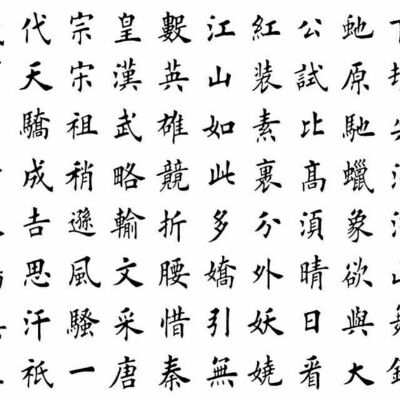 虵原馳蠟象欲與大
公試比高須晴日看
紅裝素裹分外妖嬈
江山如此多嬌引無
數英雄競折腰惜秦
皇漢武略輸文采唐
宗宋祖稍遜風騷一
代天驕成吉思汗祇